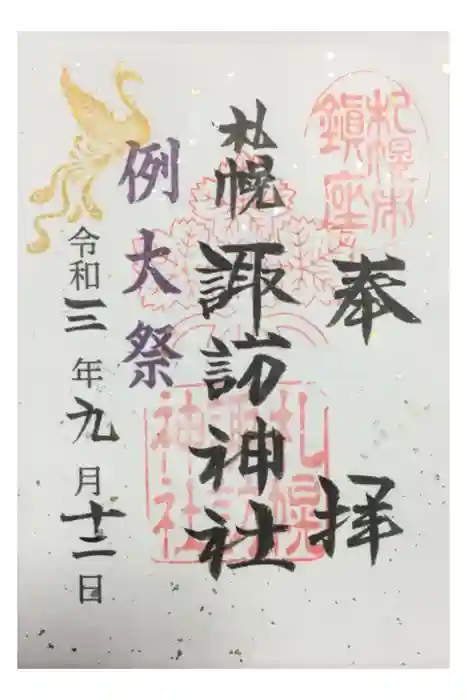 札幌市
鎮座
奉拝
札幌
諏訪神社
札幌
諏訪
神社
例大祭
令和三年九月十二日